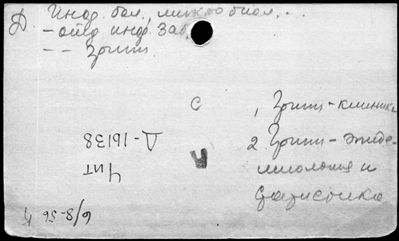 Д Инф. бол., микробиол., ...
– отд. инф. заб.
– – Грипп
С
1, Грипп – клиника
2 Грипп – эпиде-
миология и
статистика
Д-16138
Чит
6/8-56